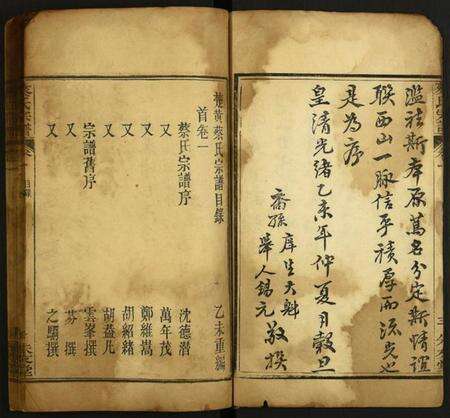 濫詿斯席原萬名分定斯情誼
聯西山一脉信乎積厚而流光也
是為序
皇清光緒乙未年仲夏月穀旦
裔孫 庠生天魁
舉人錫元 敬撰
楚黃蔡氏宗譜目錄 乙未重編
首卷一
蔡氏宗譜序 沈德潛
又 萬年茂
又 鄭維嵩
又 胡紹緒
又 胡益凡
宗譜舊序 雲峯撰
又 芬撰
又 之驌撰
蔡氏宗譜 卷一 目錄